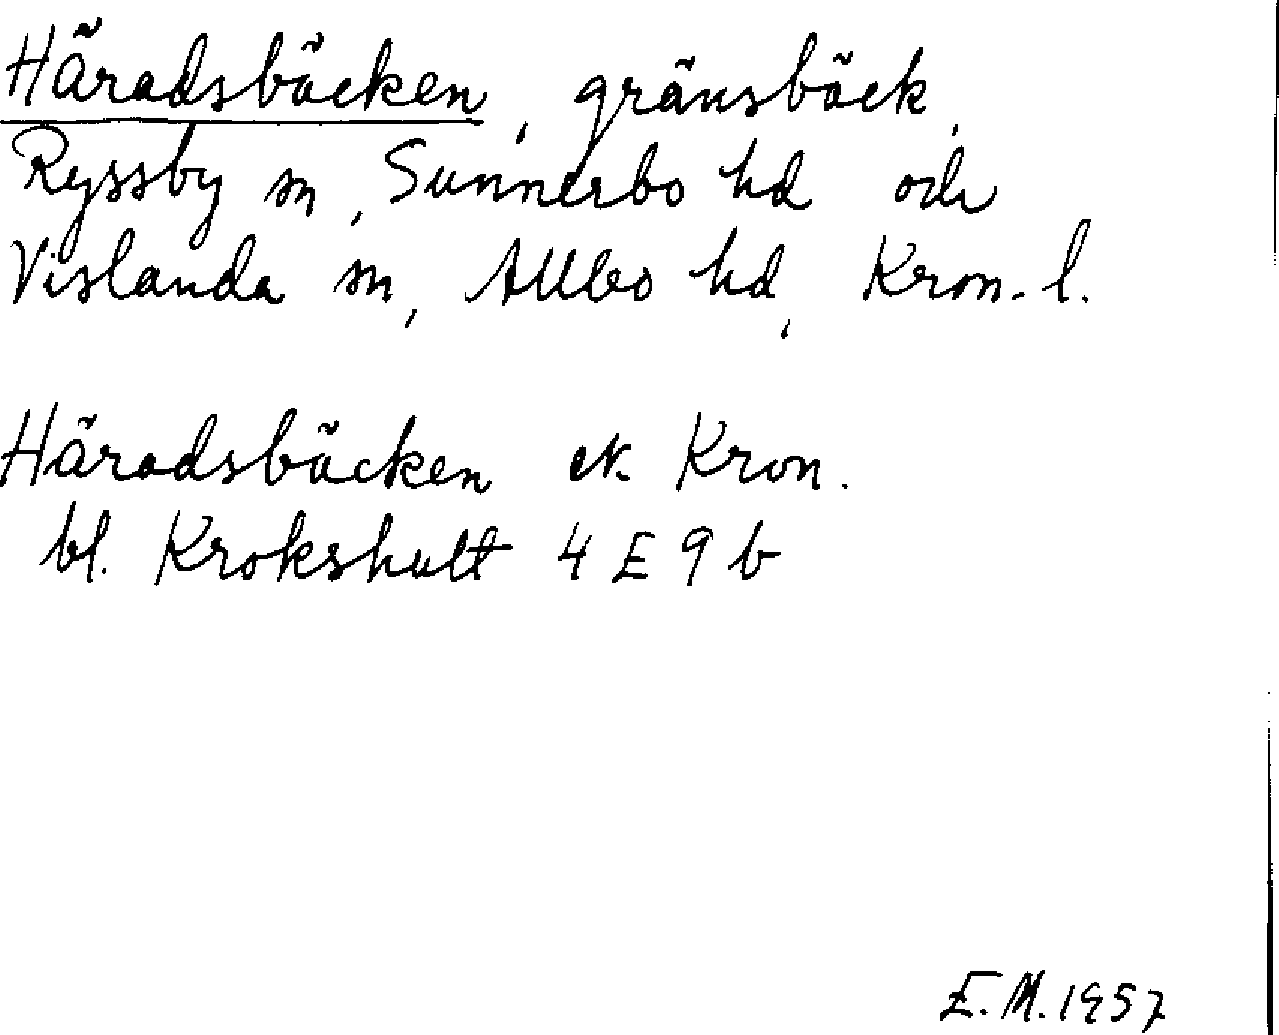 Häradsbäcken, gränsbäck,
Ryssby sn, Sunnerbo hd och
Vislanda sn, Allbo hd, Kron. l.
Häradsbäcken ek. Kron.
bl. Krokshult 4 E 9 b
E. M. 1957